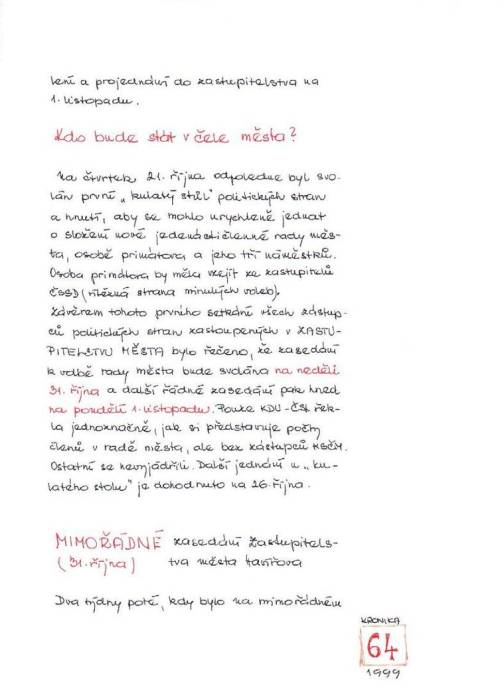 lení a projednání do zastupitelstva na
1. listopadu.
Kdo bude stát v čele města?
Na čtvrtek 21. října odpoledne byl svo-
lán první „kulatý stůl" politických stran
a hnutí, aby se mohlo urychleně jednat
o složení nové jedenáctičlenné rady měs-
ta, osobě primátora a jeho tří náměstků.
Osoba primátora by měla vzejít ze zastupitelů
ČSSD (vítězná strana minulých voleb).
Závěrem tohoto prvního setkání všech zástup-
ců politických stran zastoupených v ZASTU-
PITELSTVU MĚSTA bylo řečeno, že zasedání
k volbě rady města bude svoláno na neděli
31. října a další řádné zasedání pak hned
na pondělí 1. listopadu. Pouze KDU-ČSL řek-
la jednoznačně, jak si představuje počty
členů v radě města, ale bez zástupců KSČM.
Ostatní se nevyjádřili. Další jednání u „ku-
latého stolu" je dohodnuto na 26. října.
MIMOŘÁDNÉ zasedání Zastupitels-
(31. října) tva města Havířova
Dva týdny poté, kdy bylo na mimořádném
KRONIKA
64
1999